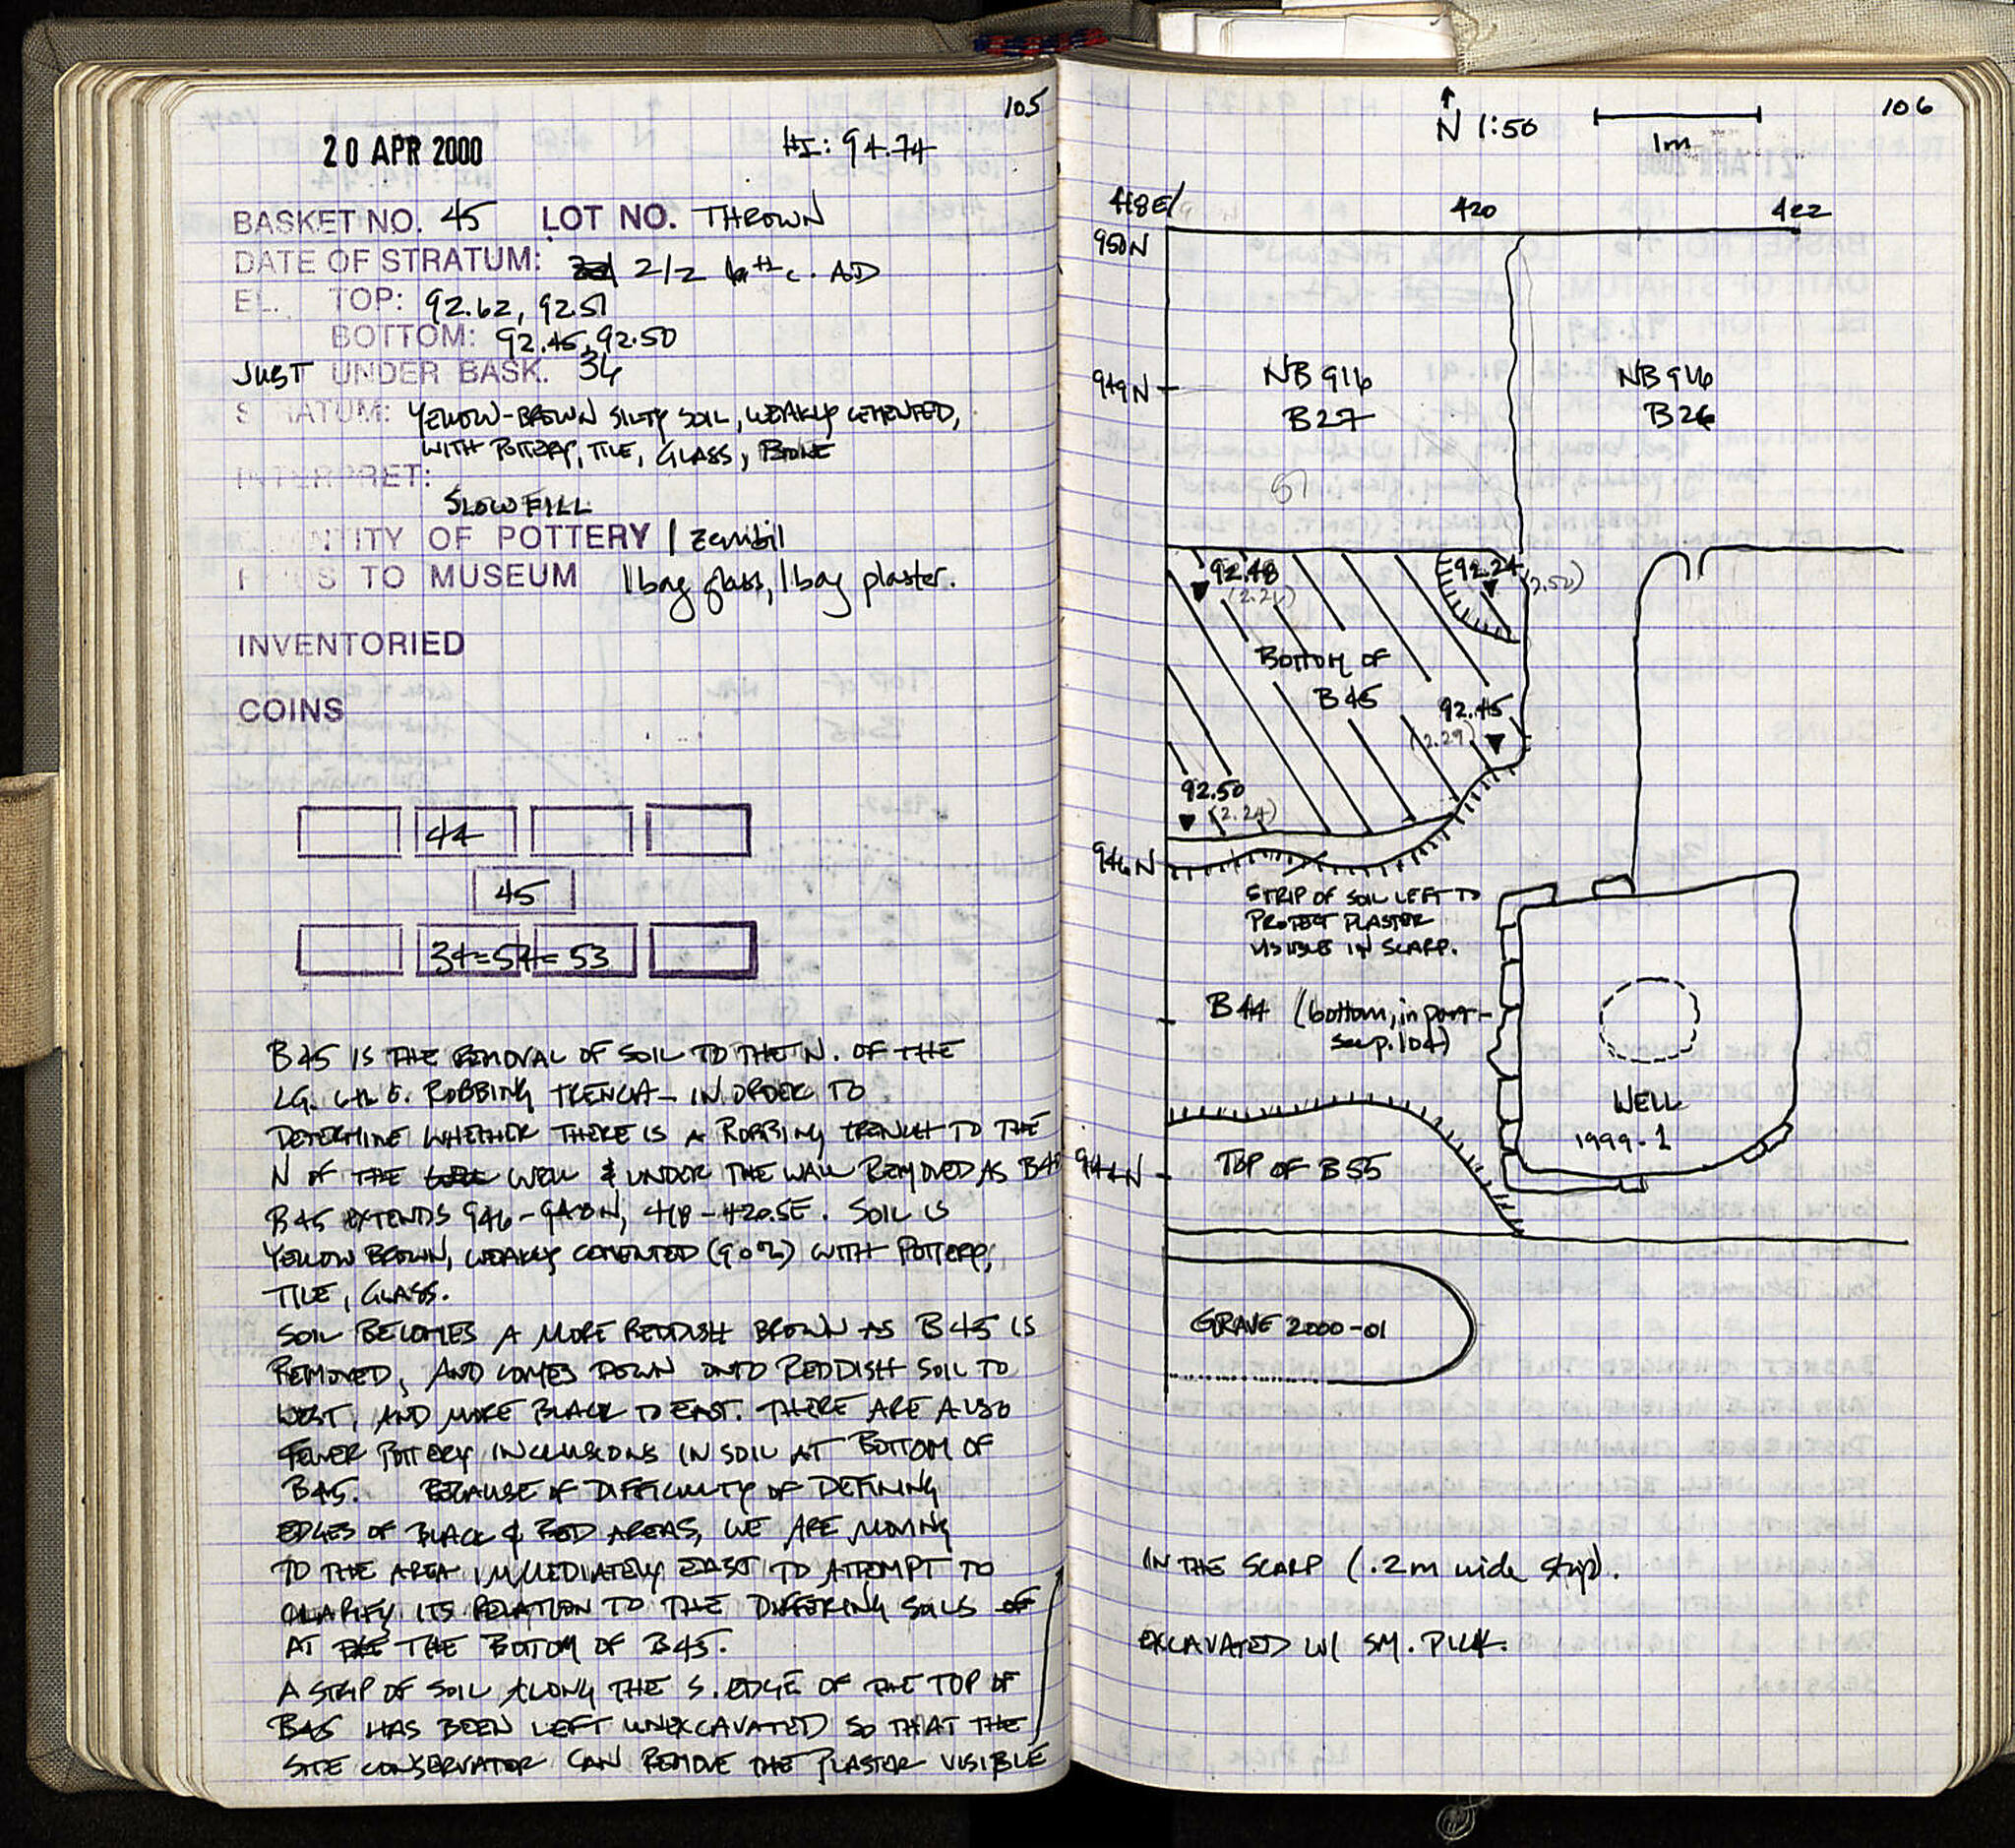 105
20 APR 2000
HI: 94.74
BASKET NO. 45 LOT NO. THROWN
DATE OF STRATUM: 2/2 6th c. AD
EL. TOP: 92.62, 92.51
BOTTOM: 92.45, 92.50
JUST UNDER BASK. 34
STRATUM: YELLOW-BROWN SILTY SOIL, WEAKLY CEMENTED,
WITH POTTERY, TILE, GLASS, BONE
INTERPRET:
SLOW FILL
QUANTITY OF POTTERY 1 zembil
FINDS TO MUSEUM 1 bag glass, 1 bag plaster.
INVENTORIED
COINS
44
45
34=54=53
B45 IS THE REMOVAL OF SOIL TO THE N. OF THE
LG. ROBBING TRENCH – IN ORDER TO
DETERMINE WHETHER THERE IS A ROBBING TRENCH TO THE
N OF THE WELL & UNDER THE WALL REMOVED AS
B45 EXTENDS 946-948N, 418-420.5E. SOIL IS
YELLOW BROWN, WEAKLY CEMENTED (90%) WITH POTTERY,
TILE, GLASS.
SOIL BECOMES A MORE REDDISH BROWN AS B45 IS
REMOVED, AND COMES DOWN ONTO REDDISH SOIL TO
WEST, AND MORE BLACK TO EAST. THERE ARE ALSO
FEWER POTTERY INCLUSIONS IN SOIL AT BOTTOM OF
B45. BECAUSE OF DIFFICULTY OF DEFINING
EDGES OF BLACK & RED AREAS, WE ARE MOVING
TO THE AREA IMMEDIATELY EAST TO ATTEMPT TO
CLARIFY ITS RELATION TO THE DIFFERING SOILS OF
AT THE THE BOTTOM OF B45.
A STRIP OF SOIL ALONG THE S. EDGE OF THE TOP OF
B45 HAS BEEN LEFT UNEXCAVATED SO THAT THE
SITE CONSERVATOR CAN REMOVE THE PLASTER VISIBLE
106
N 1:50
1m
418E/ 420 422
950N
949N
NB 916 NB 916
B27 B26
51
92.48 92.24
(2.26) (2.50)
BOTTOM OF
B45
92.45
(2.29)
92.50
(2.24)
946N
STRIP OF SOIL LEFT TO
PROTECT PLASTER
VISIBLE IN SCARP.
B44 (bottom, in part –
see p. 104)
WELL
1999-1
944N
TOP OF B55
GRAVE 2000-01
IN THE SCARP (.2m wide strip).
EXCAVATED W/ SM. PICK.